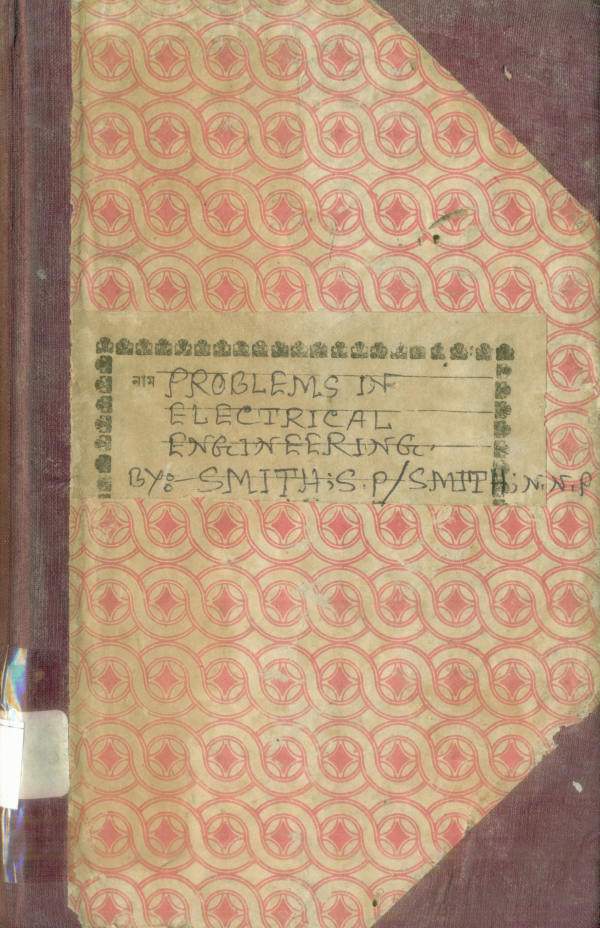 নাম PROBLEMS IN
ELECTRICAL
ENGINEERING.
BY:- SMITH; S.P/SMITH; N.N.P